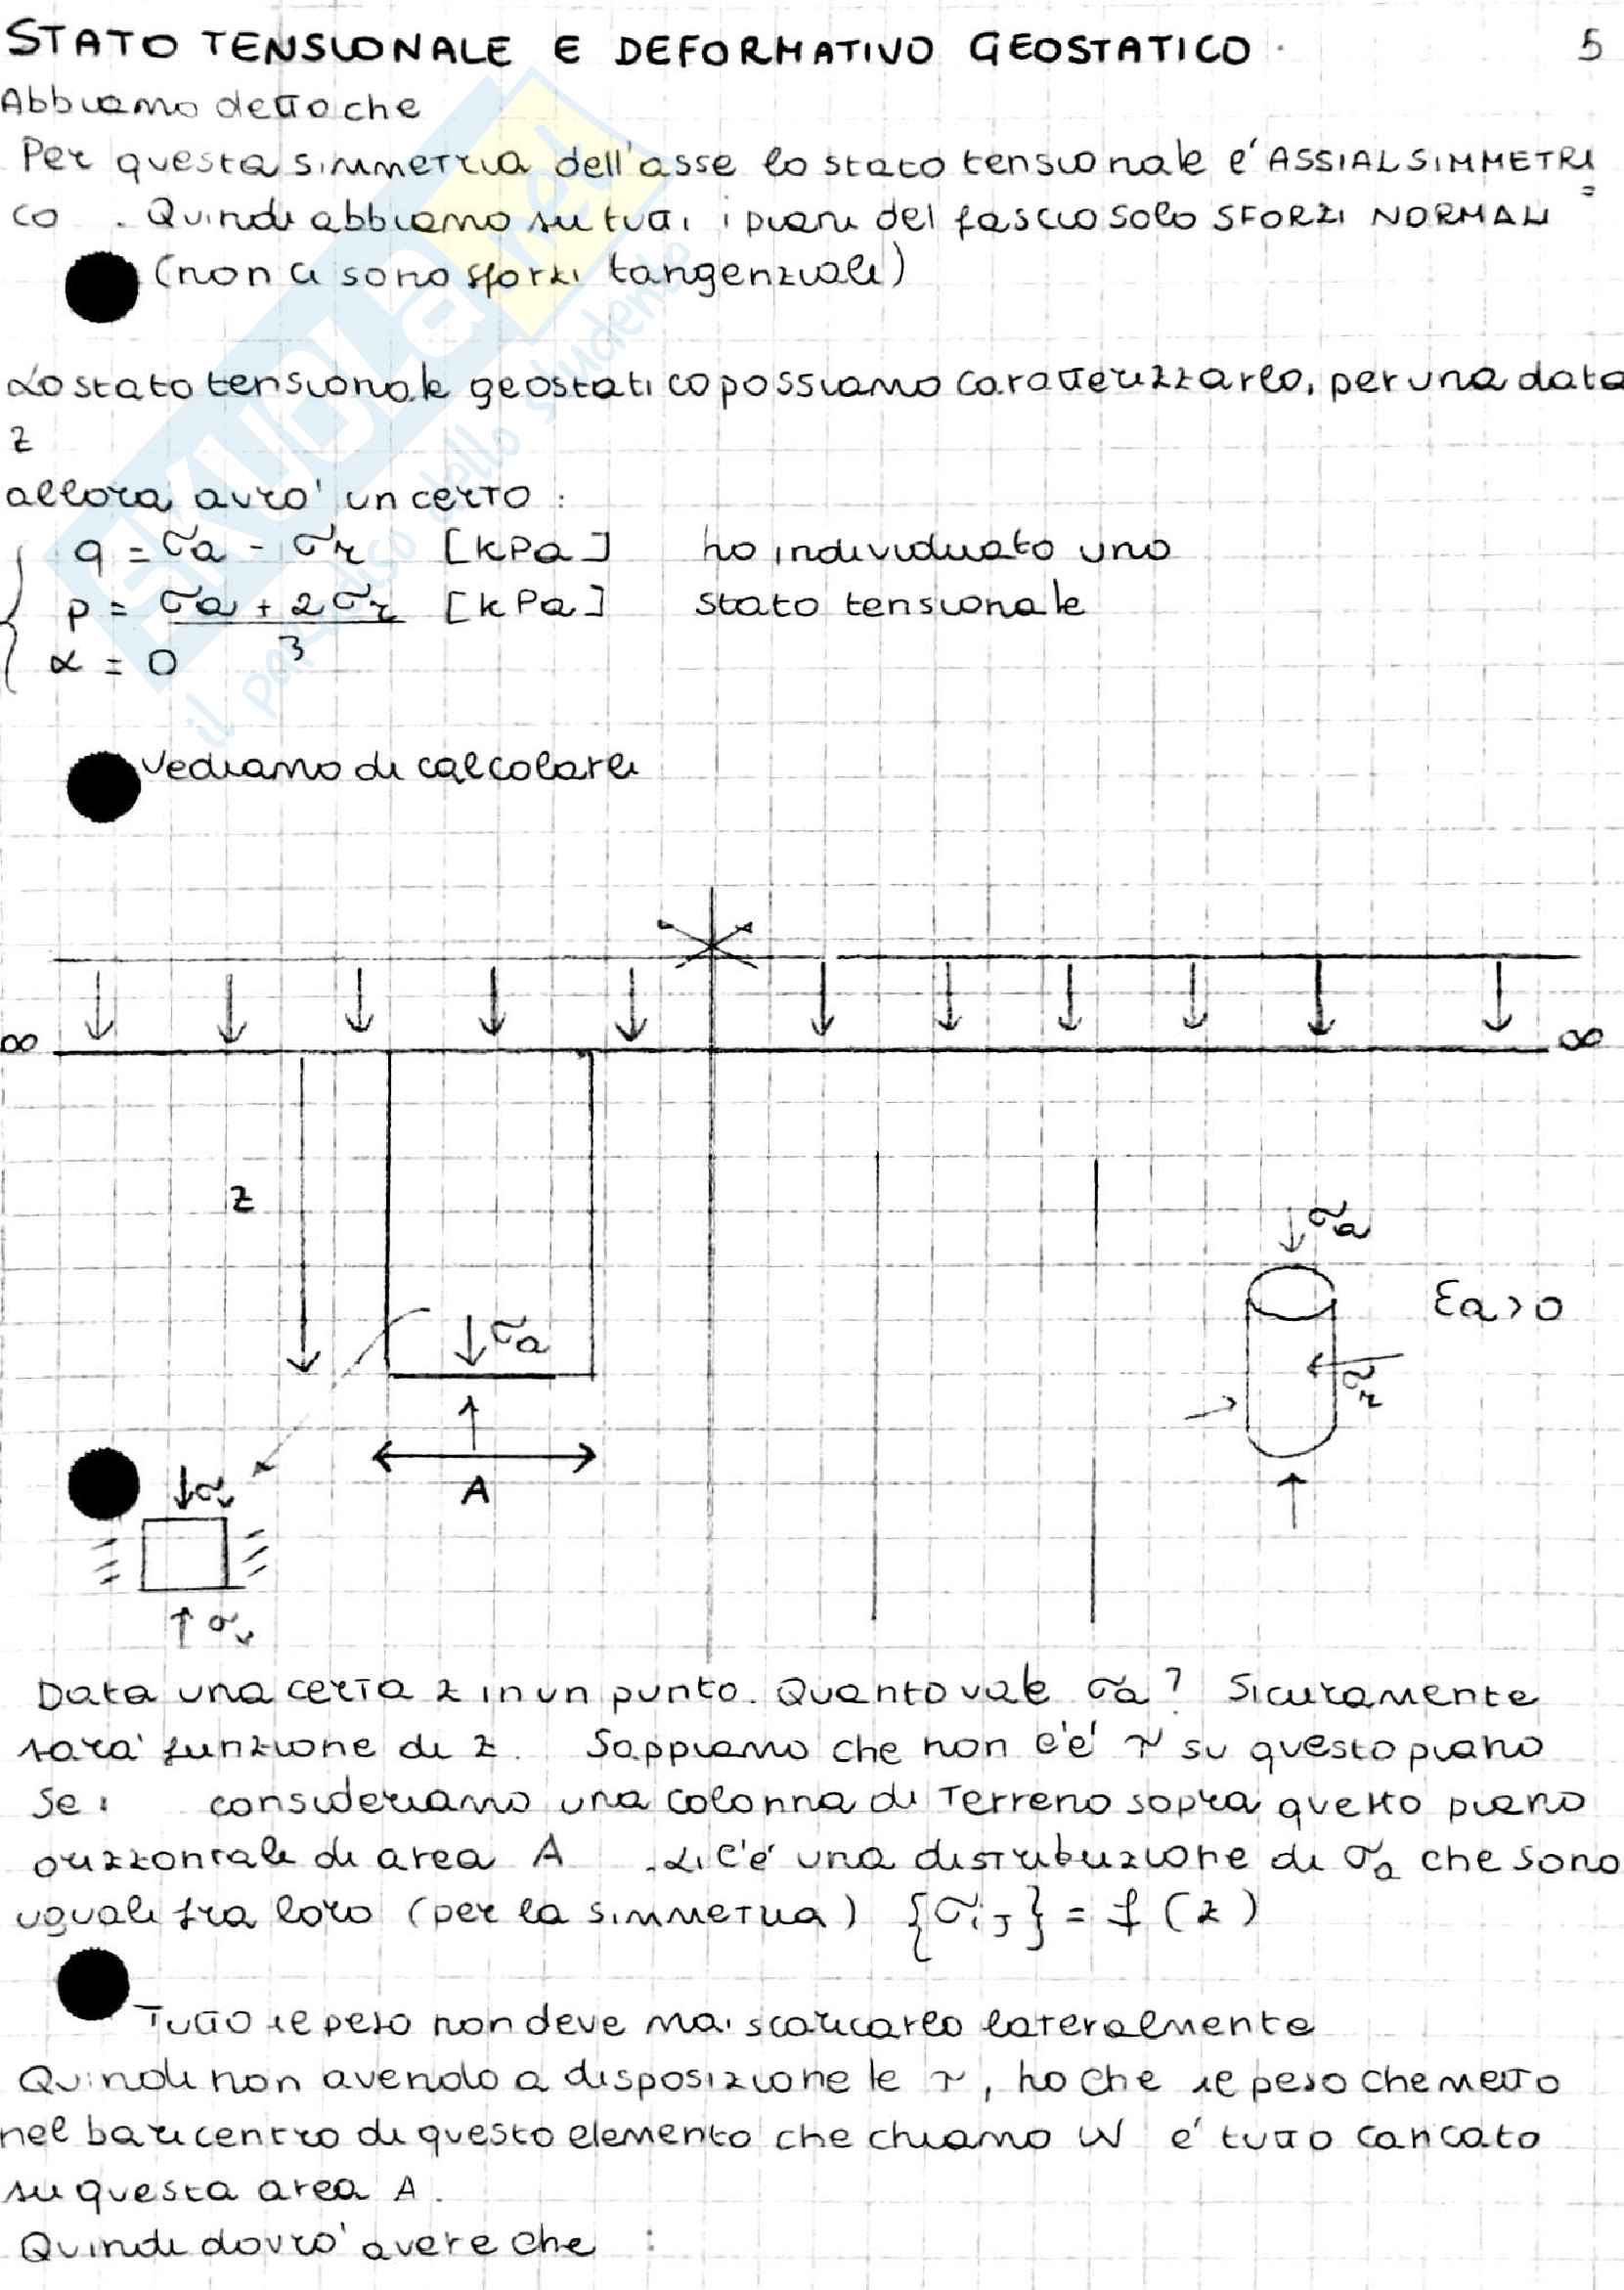 STATO TENSIONALE E DEFORMATIVO GEOSTATICO. 5
Abbiamo detto che
Per questa simmetria dell'asse lo stato tensionale e' ASSIALSIMMETRI
CO. Quindi abbiamo su tutti i piani del fascio solo SFORZI NORMALI
(non ci sono sforzi tangenziali)
Lo stato tensionale geostatico possiamo caratterizzarlo, per una data
z
allora avro' un certo:
q = σa - σr [kPa] ho individuato uno
p = σa + 2σr / 3 [kPa] stato tensionale
α = 0
Vediamo di calcolarli
∞ ∞
z
σa
σa
εa > 0
σr
A
σv
σv
Data una certa z in un punto. Quanto vale σa? Sicuramente
sara' funzione di z. Sappiamo che non c'e' τ su questo piano
Se: consideriamo una colonna di terreno sopra questo piano
orizzontale di area A. Li c'e' una distribuzione di σa che sono
uguali fra loro (per la simmetria) {σij} = f(z)
Tutto il peso non deve mai scaricarlo lateralmente
Quindi non avendo a disposizione le τ, ho che il peso che metto
nel baricentro di questo elemento che chiamo W e' tutto caricato
su questa area A.
Quindi dovro' avere che :
skuola.net
il paradiso dello studente